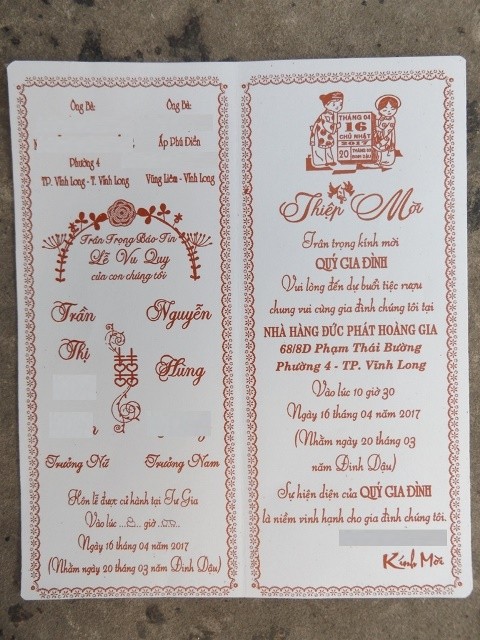 Ông Bà:
Ông Bà:
Ấp Phú Điền
Phường 4
TP. Vĩnh Long - T. Vĩnh Long
Vũng Liêm - Vĩnh Long
Trân Trọng Báo Tin
Lễ Vu Quy
của con chúng tôi
Trần
Nguyễn
Thị
Hùng
Trưởng Nữ
Trưởng Nam
Hôn lễ được cử hành tại Tư Gia
Vào lúc ...8... giờ ..00..
Ngày 16 tháng 04 năm 2017
(Nhằm ngày 20 tháng 03 năm Đinh Dậu)
THÁNG 04
16
CHỦ NHẬT
2017
20 THÁNG 03
ĐINH DẬU
Thiệp Mời
Trân trọng kính mời
QUÝ GIA ĐÌNH
Vui lòng đến dự buổi tiệc rượu
chung vui cùng gia đình chúng tôi tại
NHÀ HÀNG ĐỨC PHÁT HOÀNG GIA
68/8D Phạm Thái Bường
Phường 4 - TP. Vĩnh Long
Vào lúc 10 giờ 30
Ngày 16 tháng 04 năm 2017
(Nhằm ngày 20 tháng 03
năm Đinh Dậu)
Sự hiện diện của QUÝ GIA ĐÌNH
là niềm vinh hạnh cho gia đình chúng tôi.
Kính Mời